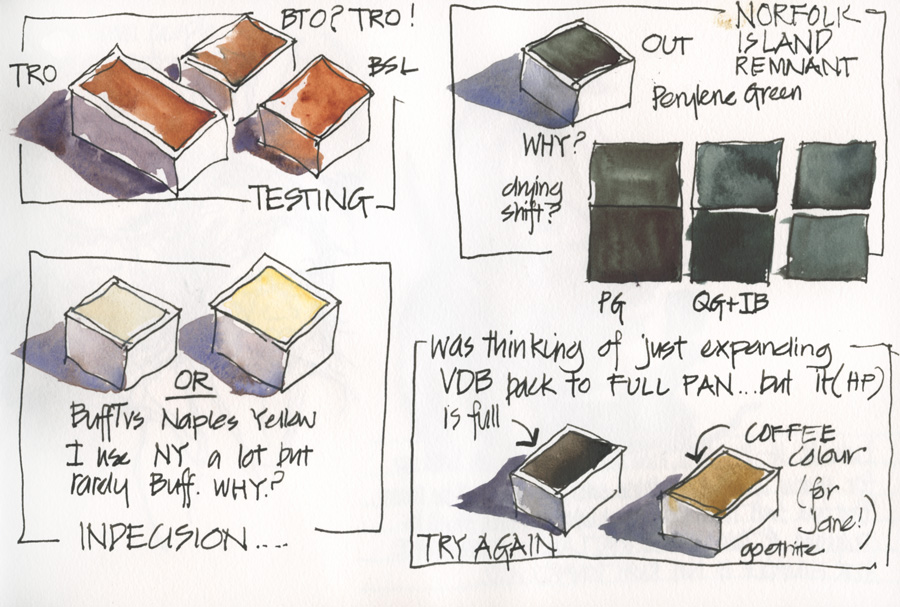 BTO? TRO!
TRO
BSL
TESTING
NORFOLK
ISLAND
REMNANT
OUT
Perylene Green
WHY?
drying
shift?
PG
QG+IB
OR
BuffT vs Naples Yellow
I use NY a lot but
rarely Buff. WHY?
INDECISION....
Was thinking of just expanding
VDB back to FULL PAN...but it (HP)
is full
COFFEE
Colour
(for
Jane!)
goethite
TRY AGAIN